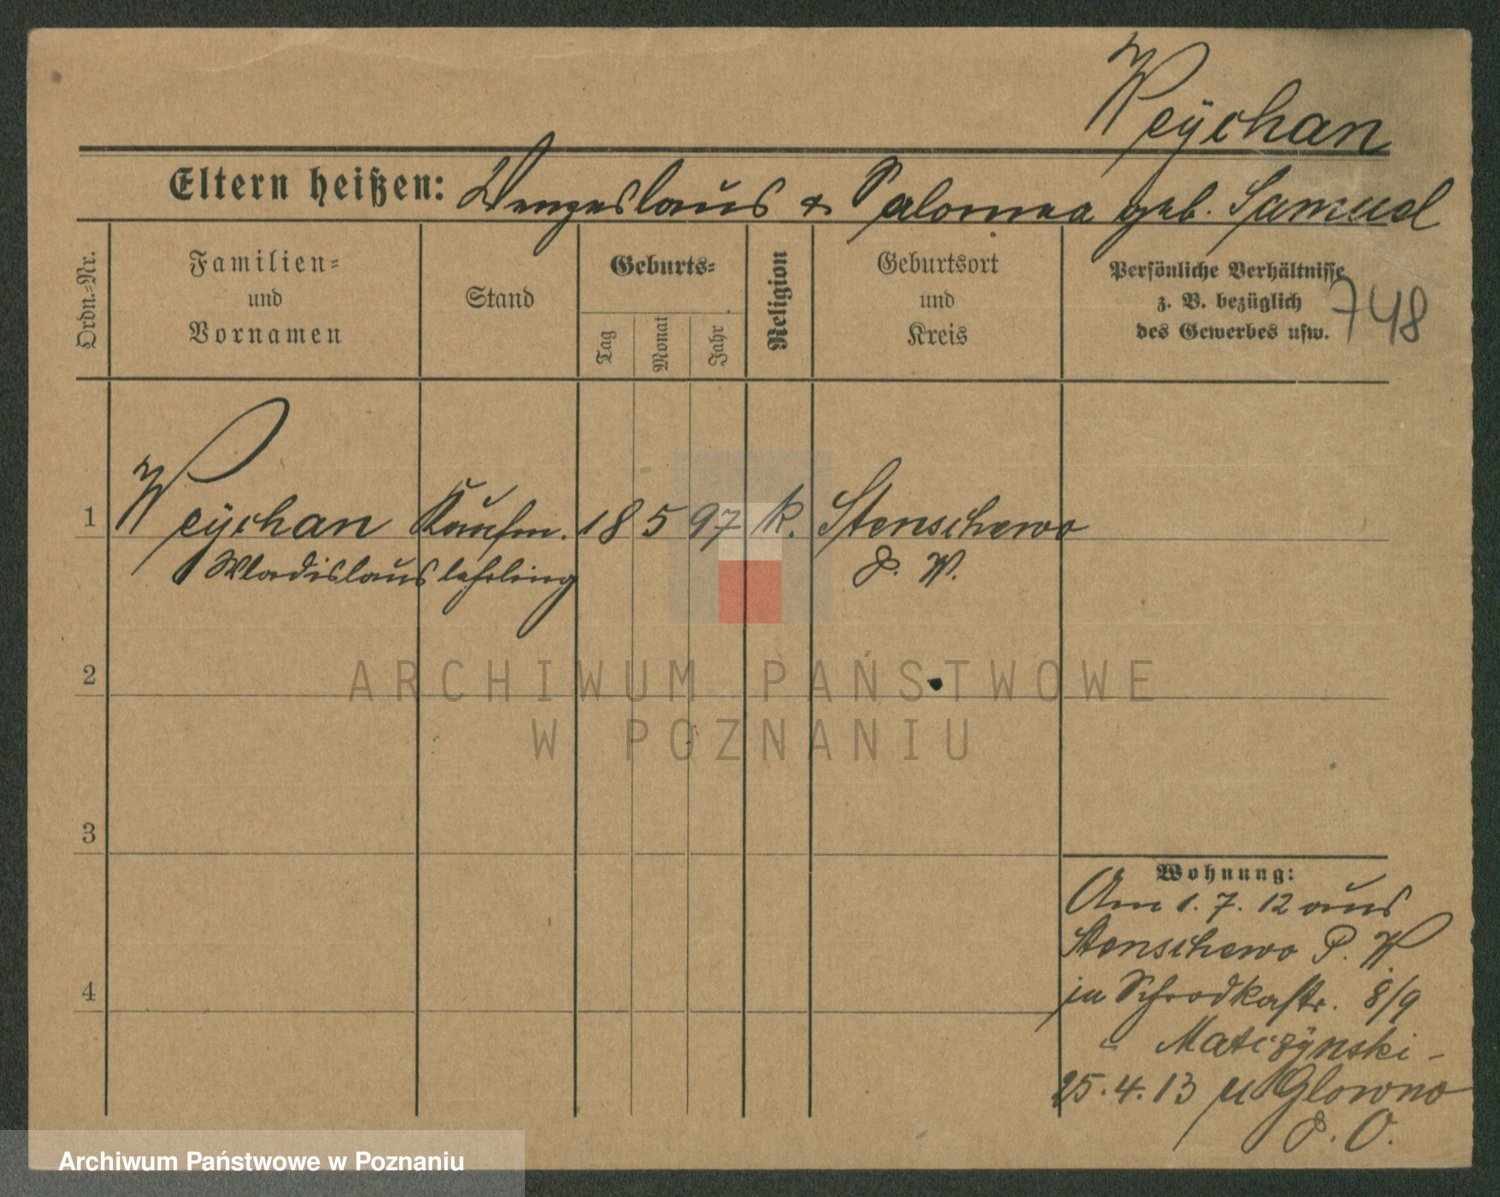 Weÿchan
Eltern heißen: Wenzeslaus & Salomea geb. Samuel
Ordn.-Nr.
Familien-
und
Vornamen
Stand
Geburts-
Tag
Monat
Jahr
Religion
Geburtsort
und
Kreis
Persönliche Verhältnisse
z. B. bezüglich
des Gewerbes usw.
748
1 Weÿchan Kaufm. 18 5 97 k. Stenschewo
Wladislaus lehrling P. W.
2
3
4
Wohnung:
Am 1.7.12 aus
Stenschewo P. W
zu Schrodkastr. 8/9
Matczÿnski -
25.4.13 n Glowno
P. O.
ARCHIWUM PAŃSTWOWE
W POZNANIU
Archiwum Państwowe w Poznaniu